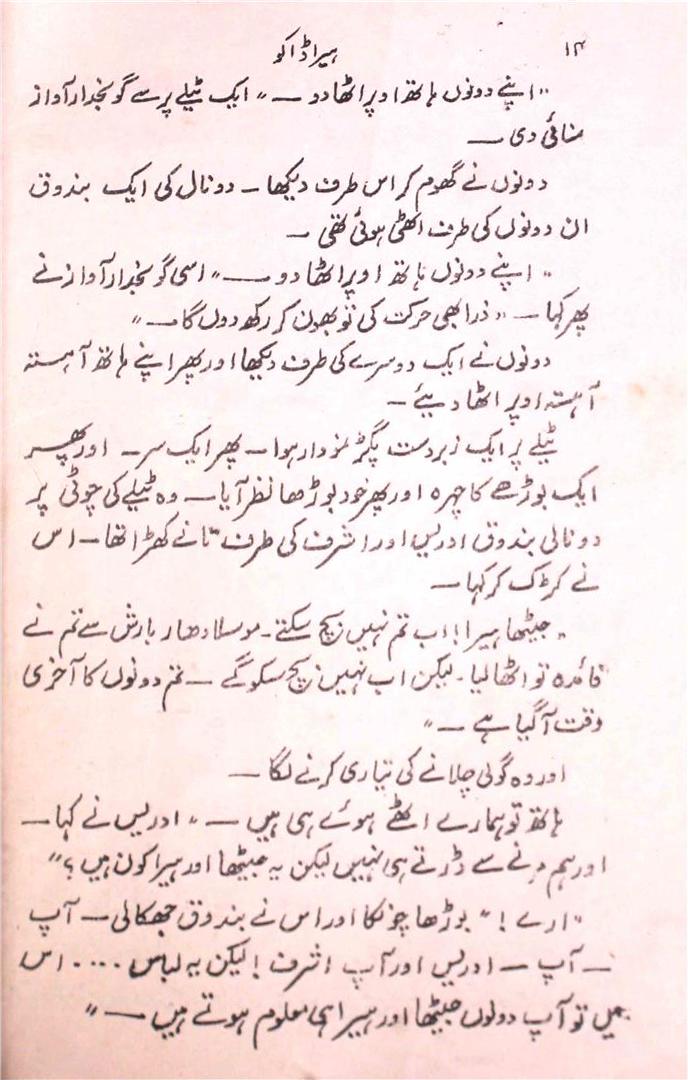 ۱۴ ہیرا ڈاکو
"اپنے دونوں ہاتھ اوپر اٹھا دو —" ایک ٹیلے پر سے گونجدار آواز
سنائی دی —
دونوں نے گھوم کر اس طرف دیکھا — دو نال کی ایک بندوق
ان دونوں کی طرف اٹھی ہوئی تھی —
"اپنے دونوں ہاتھ اوپر اٹھا دو —" اسی گونجدار آواز نے
پھر کہا — "ذرا بھی حرکت کی تو بھون کر رکھ دوں گا —"
دونوں نے ایک دوسرے کی طرف دیکھا اور پھر اپنے ہاتھ آہستہ
آہستہ اوپر اٹھا دیئے —
ٹیلے پر ایک زبردست پگڑ نمودار ہوا — پھر ایک سر — اور پھر
ایک بوڑھے کا چہرہ اور پھر خود بوڑھا نظر آیا — وہ ٹیلے کی چوٹی پر
دونالی بندوق ادریس اور اشرف کی طرف تانے کھڑا تھا — اس
نے کڑک کر کہا —
"جیٹھا ہیرا! اب تم نہیں بچ سکتے - موسلادھار بارش سے تم نے
فائدہ تو اٹھا لیا - لیکن اب نہیں بچ سکو گے — تم دونوں کا آخری
وقت آ گیا ہے —"
اور وہ گولی چلانے کی تیاری کرنے لگا —
ہاتھ تو ہمارے اٹھے ہوئے ہی ہیں —" ادریس نے کہا —
اور ہم مرنے سے ڈرتے ہی نہیں لیکن یہ جیٹھا اور ہیرا کون ہیں؟"
"ارے!" بوڑھا چونکا اور اس نے بندوق جھکالی — آپ
— آپ — ادریس اور آپ اشرف! لیکن یہ لباس .... اس
میں تو آپ دونوں جیٹھا اور ہیرا ہی معلوم ہوتے ہیں —"